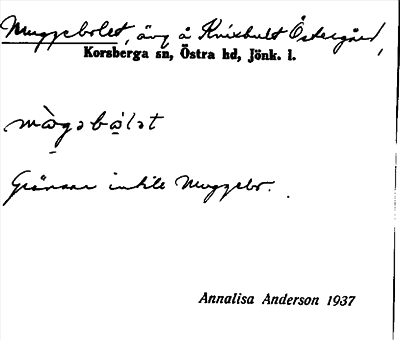 Muggebolet, äng å Knixhult Östergård,
Korsberga sn, Östra hd, Jönk. l.
mògəbólət
Gränsar intill Muggebo.
Annalisa Anderson 1937